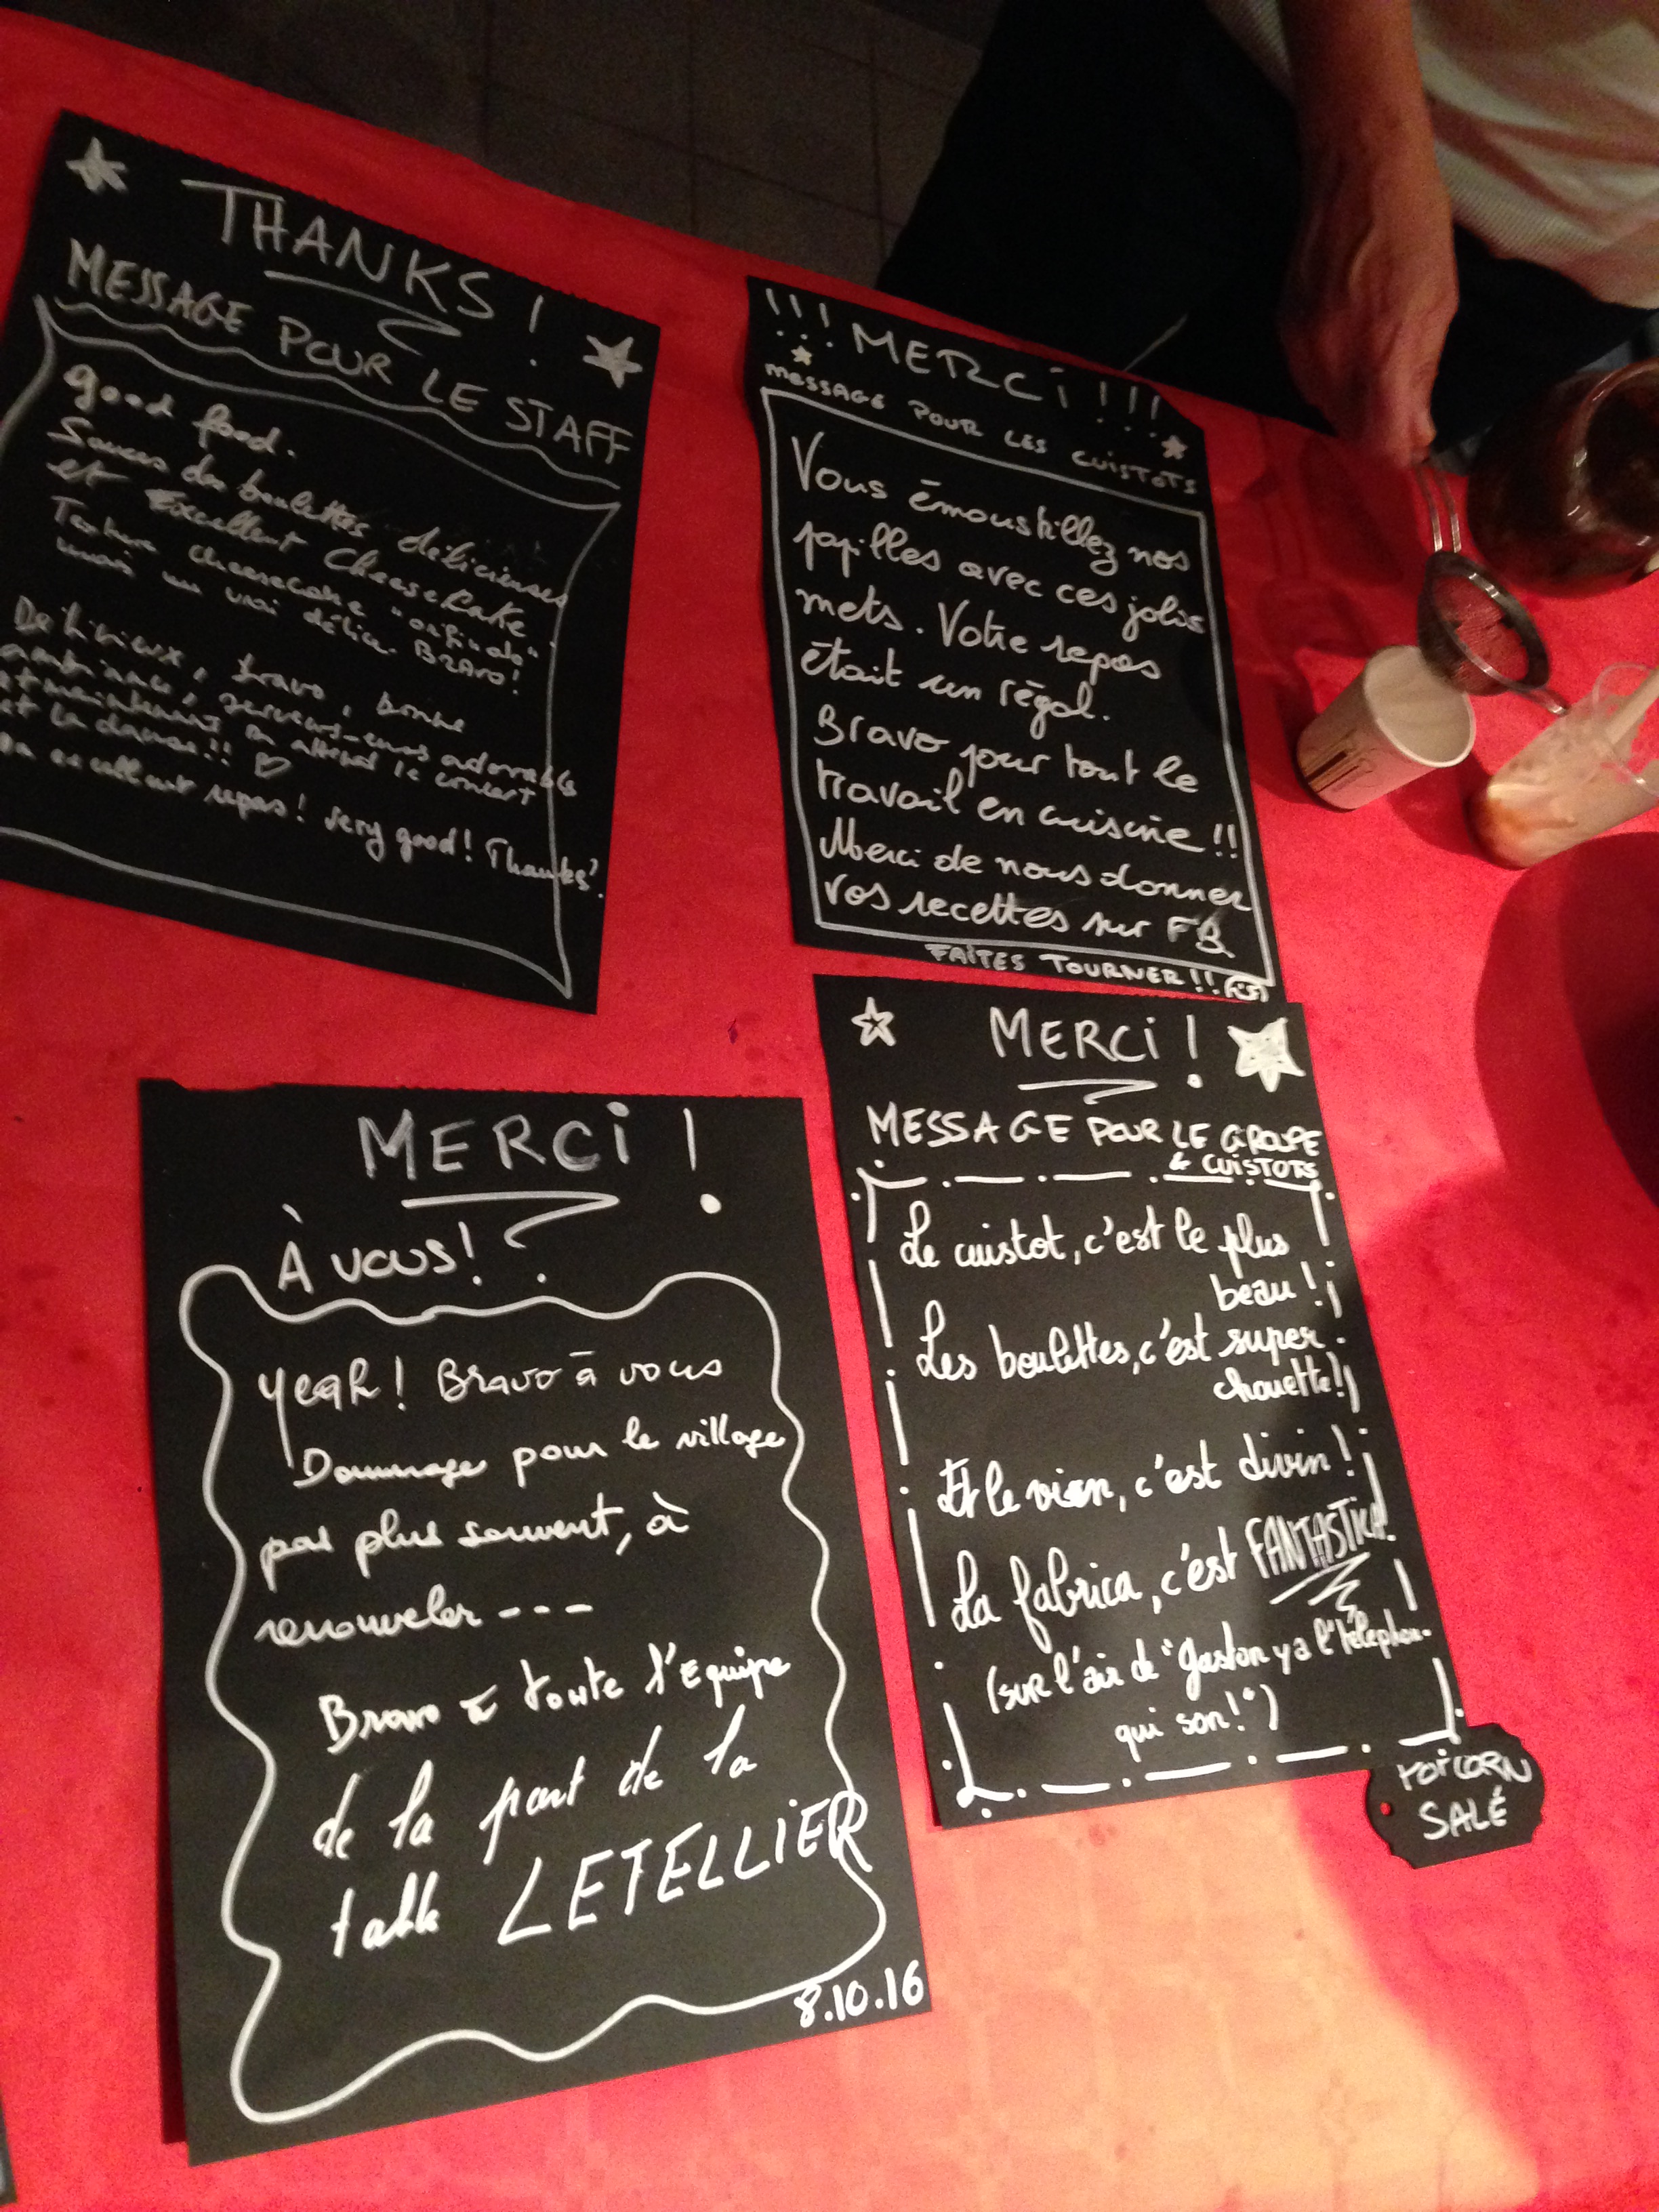 THANKS!
MESSAGE POUR LE STAFF
good food.
Sauces des boulettes délicieuses
et Excellent CheeseKake
Texture cheesecake "originale"
mais un vrai délice. BRAVO!
Délicieux, bravo, bonne
ambiance, serveurs-euses adorables
et maintenant on attend le concert
et la danse!! ♡
Un excellent repas! Very good! Thanks!
!!! MERCi!!!
MESSAGE POUR LES CUISTOTS
Vous émoustillez nos
papilles avec ces jolis
mets. Votre repas
était un régal.
Bravo pour tout le
travail en cuisine!!
Merci de nous donner
vos recettes sur FB
FAITES TOURNER!!
MERCi!
À VOUS!
Yeah! Bravo à vous
Dommage pour le village
pas plus souvent, à
renouveler ---
Bravo à toute l'Equipe
de la part de la
table LETELLIER
8.10.16
MERCi!
MESSAGE POUR LE GROUPE
& CUISTOTS
Le cuistot, c'est le plus
beau!
Les boulettes, c'est super
chouette!
Et le vien, c'est divin!
La fabrica, c'est FANTASTICA!
(sur l'air de "Gaston y a l'téléphon
qui son!")
POPCORN
SALÉ